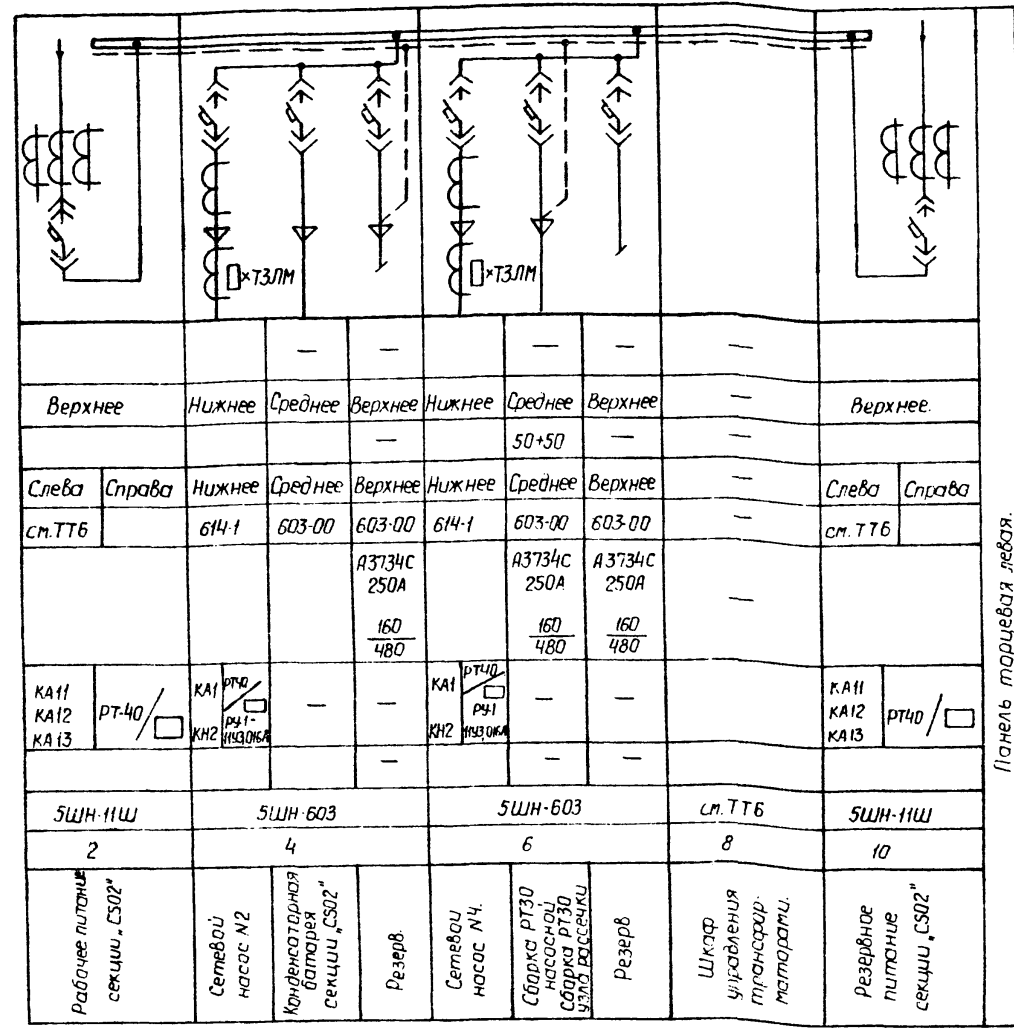 ×ТЗЛМ
×ТЗЛМ
— — — — —
Верхнее Нижнее Среднее Верхнее Нижнее Среднее Верхнее — Верхнее.
— 50+50 — —
Слева Справа Нижнее Среднее Верхнее Нижнее Среднее Верхнее — Слева Справа
см.ТТ6 614-1 603-00 603-00 614-1 603-00 603-00 — см.ТТ6
А3734С А3734С А3734С
250А 250А 250А
—
160 160 160
480 480 480
КА11
КА12
КА13
РТ-40/
КА1 РТ40
РУ1-
КН2 11УЗ,016А
— —
КА1 РТ40
РУ1
КН2 11УЗ,016А
— —
КА11
КА12
КА13
РТ40 /
— — —
5ШН-11Ш 5ШН-603 5ШН-603 см.ТТ6 5ШН-11Ш
2 4 6 8 10
Рабочее питание
секции „CS02"
Сетевой
насос N2
Конденсаторная
батарея
секции „CS02"
Резерв.
Сетевой
насос N4.
Сборка РТ30
насосной
Сборка РТ30
узла рассечки
Резерв
Шкаф
управления
трансфор-
маторами.
Резервное
питание
секции „CS02"
Панель торцевая левая.